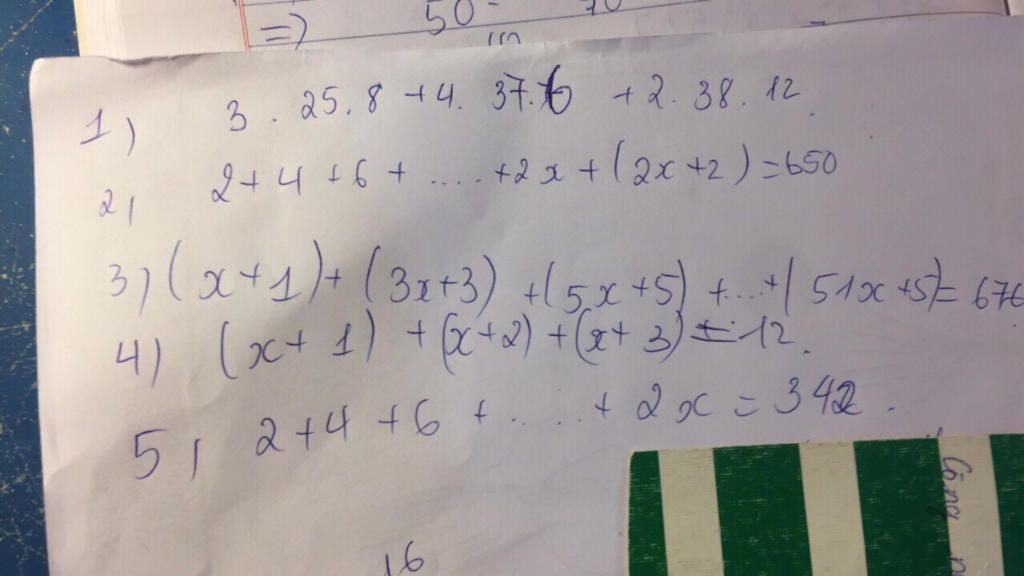 =) 50 - 70
1) 3 . 25 . 8 + 4 . 37 . 6 + 2 . 38 . 12
2, 2 + 4 + 6 + ..... + 2x + (2x + 2) = 650
3) (x + 1) + (3x + 3) + (5x + 5) + ... + (51x + 5) = 676
4) (x + 1) + (x + 2) + (x + 3) = 12.
5, 2 + 4 + 6 + ..... + 2x = 342.
Công
16